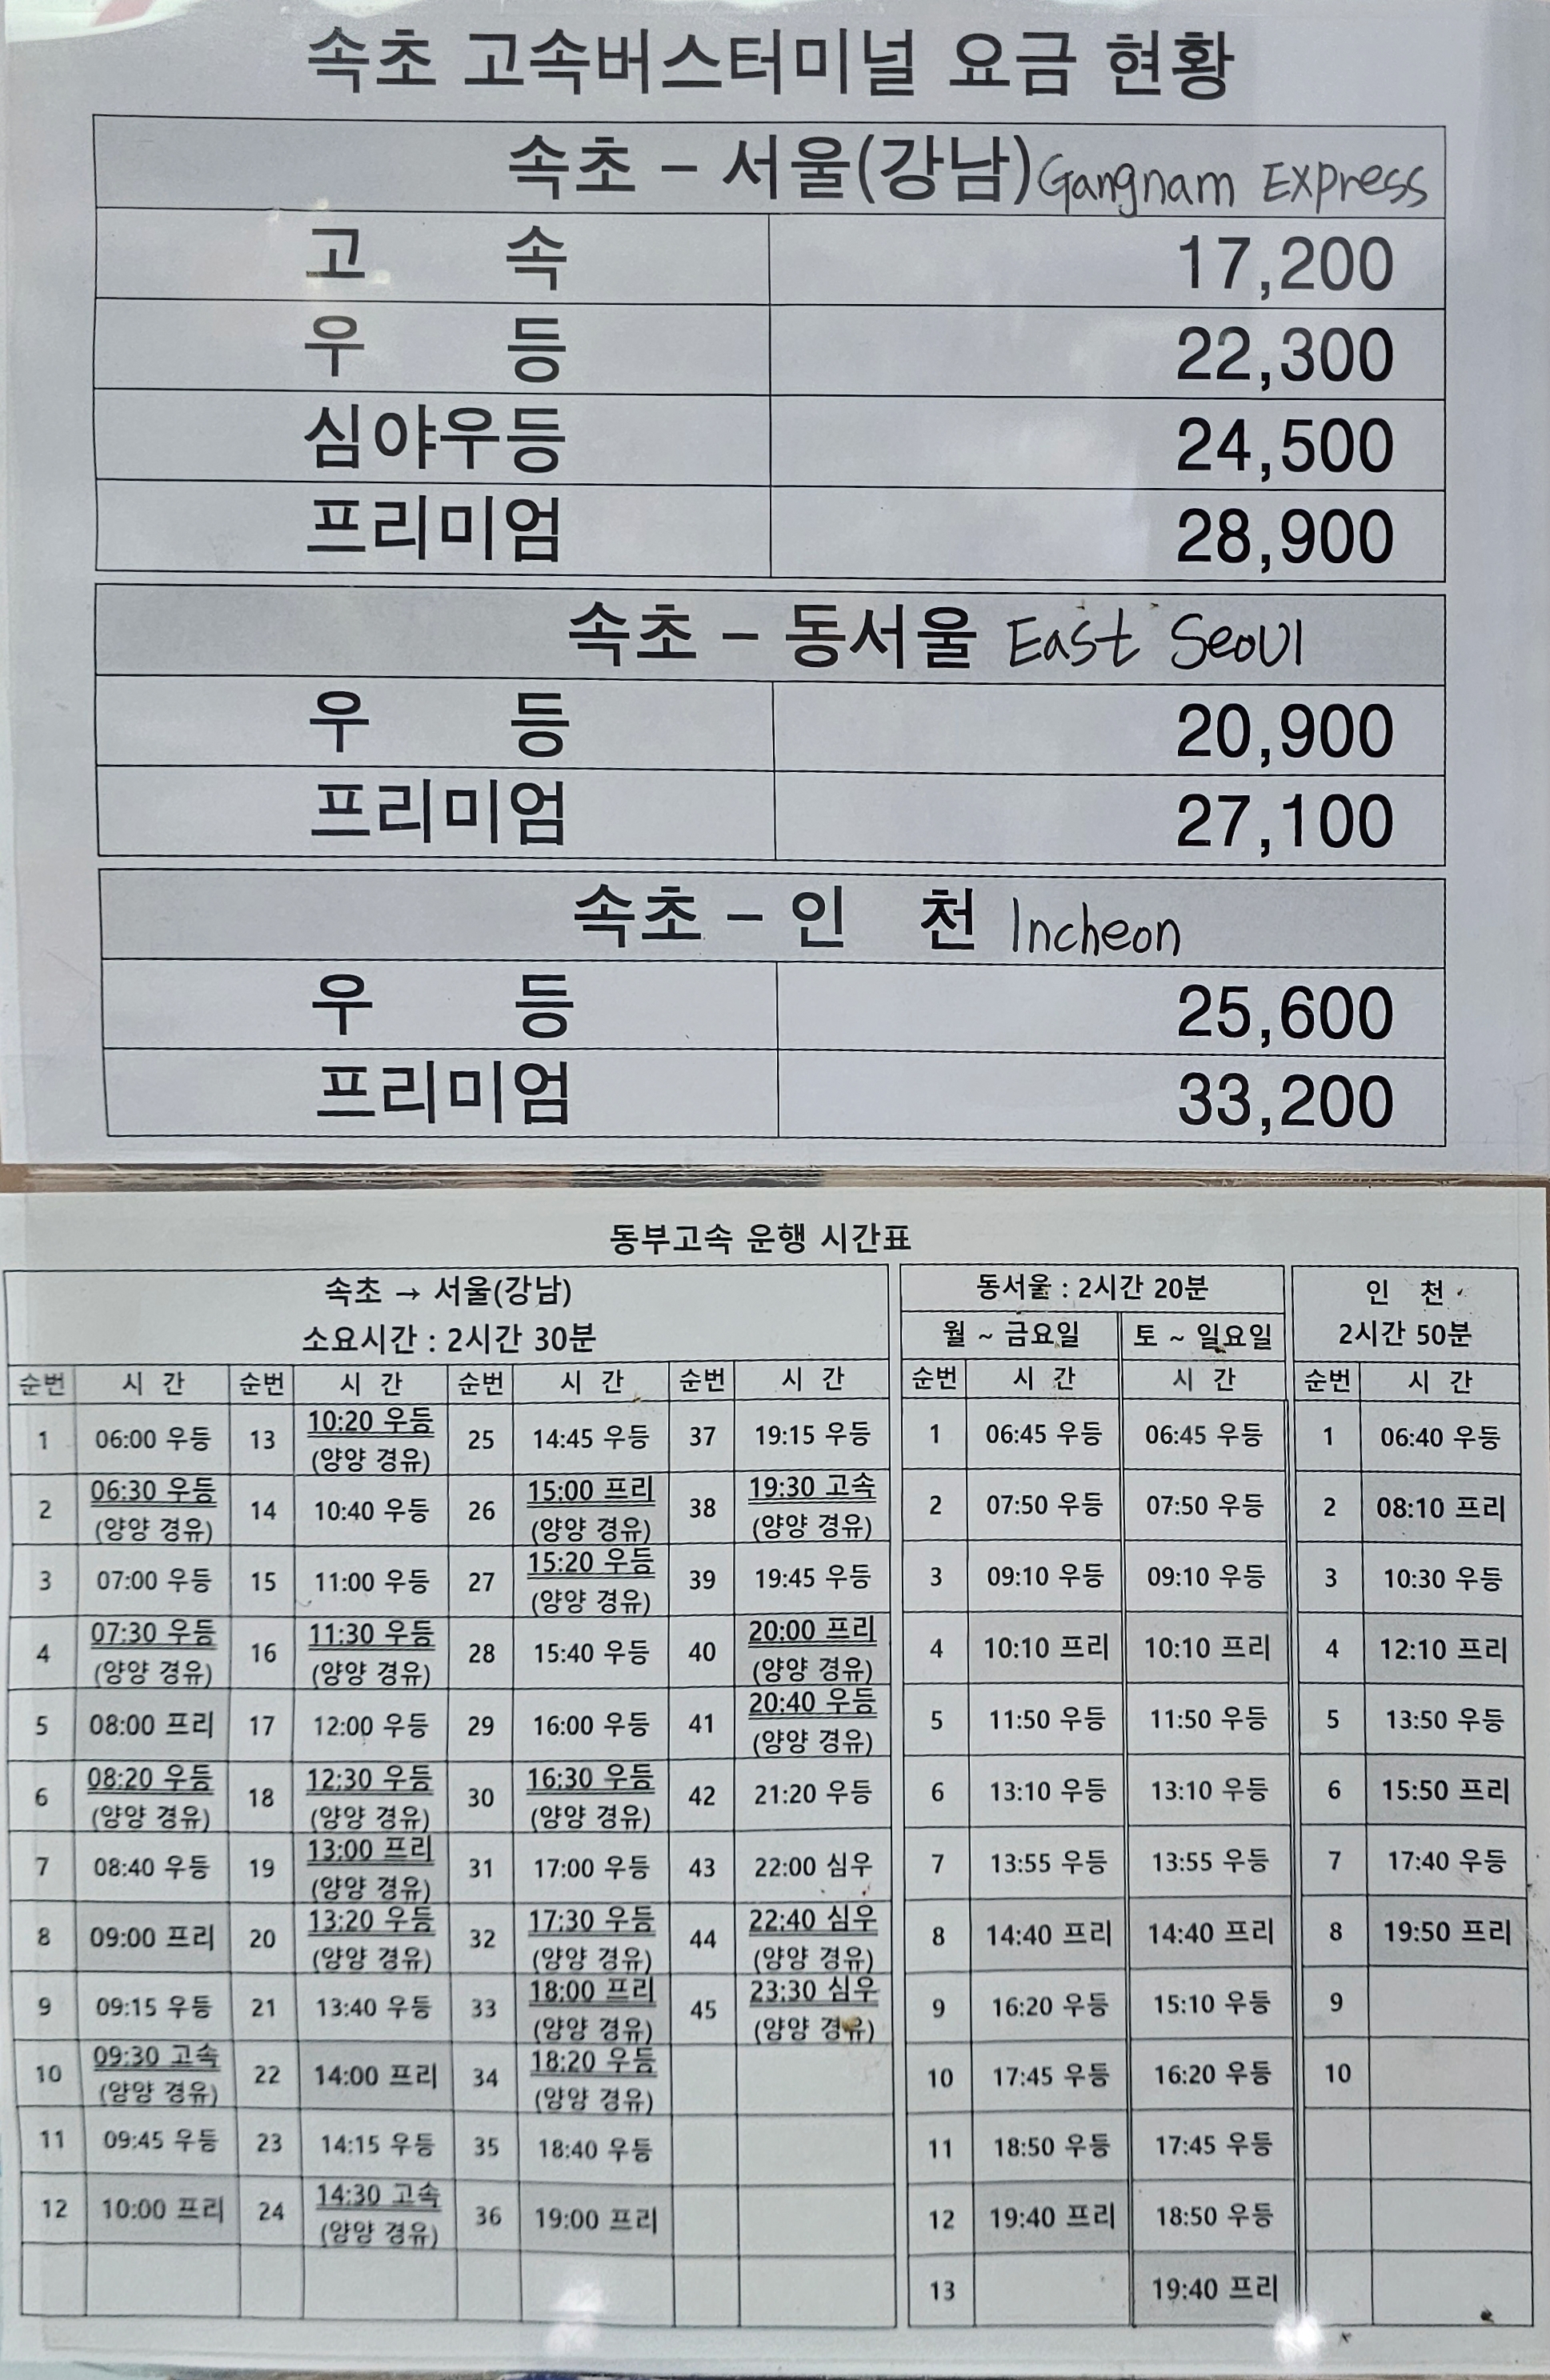 속초 고속버스터미널 요금 현황
속초 - 서울(강남) Gangnam Express
고 속 17,200
우 등 22,300
심야우등 24,500
프리미엄 28,900
속초 - 동서울 East Seoul
우 등 20,900
프리미엄 27,100
속초 - 인 천 Incheon
우 등 25,600
프리미엄 33,200
동부고속 운행 시간표
속초 → 서울(강남) 동서울 : 2시간 20분 인 천
소요시간 : 2시간 30분 월 ~ 금요일 토 ~ 일요일 2시간 50분
순번 시 간 순번 시 간 순번 시 간 순번 시 간 순번 시 간 시 간 순번 시 간
1 06:00 우등 13 10:20 우등 (양양 경유) 25 14:45 우등 37 19:15 우등 1 06:45 우등 06:45 우등 1 06:40 우등
2 06:30 우등 (양양 경유) 14 10:40 우등 26 15:00 프리 (양양 경유) 38 19:30 고속 (양양 경유) 2 07:50 우등 07:50 우등 2 08:10 프리
3 07:00 우등 15 11:00 우등 27 15:20 우등 (양양 경유) 39 19:45 우등 3 09:10 우등 09:10 우등 3 10:30 우등
4 07:30 우등 (양양 경유) 16 11:30 우등 (양양 경유) 28 15:40 우등 40 20:00 프리 (양양 경유) 4 10:10 프리 10:10 프리 4 12:10 프리
5 08:00 프리 17 12:00 우등 29 16:00 우등 41 20:40 우등 (양양 경유) 5 11:50 우등 11:50 우등 5 13:50 우등
6 08:20 우등 (양양 경유) 18 12:30 우등 (양양 경유) 30 16:30 우등 (양양 경유) 42 21:20 우등 6 13:10 우등 13:10 우등 6 15:50 프리
7 08:40 우등 19 13:00 프리 (양양 경유) 31 17:00 우등 43 22:00 심우 7 13:55 우등 13:55 우등 7 17:40 우등
8 09:00 프리 20 13:20 우등 (양양 경유) 32 17:30 우등 (양양 경유) 44 22:40 심우 (양양 경유) 8 14:40 프리 14:40 프리 8 19:50 프리
9 09:15 우등 21 13:40 우등 33 18:00 프리 (양양 경유) 45 23:30 심우 (양양 경유) 9 16:20 우등 15:10 우등 9
10 09:30 고속 (양양 경유) 22 14:00 프리 34 18:20 우등 (양양 경유) 10 17:45 우등 16:20 우등 10
11 09:45 우등 23 14:15 우등 35 18:40 우등 11 18:50 우등 17:45 우등
12 10:00 프리 24 14:30 고속 (양양 경유) 36 19:00 프리 12 19:40 프리 18:50 우등
13 19:40 프리